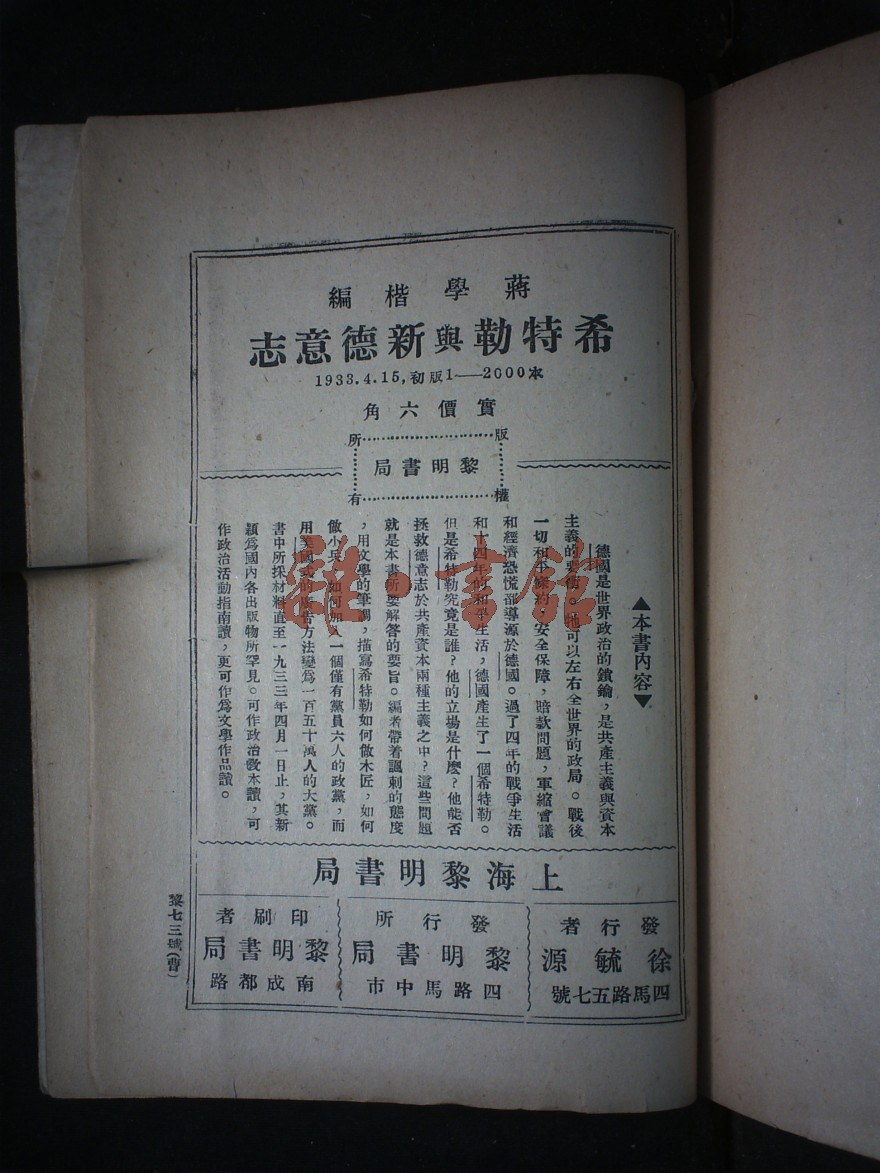 蔣學楷編
希特勒與新德意志
1933.4.15,初版1——2000本
實價六角
版權所有
黎明書局
▲本書內容▼
德國是世界政治的鎖鑰,是共產主義與資本
主義的要衝。牠可以左右全世界的政局。戰後
一切和平條約,安全保障,賠款問題,軍縮會議
和經濟恐慌部導源於德國。過了四年的戰爭生活
和十四年的和平生活,德國產生了一個希特勒。
但是希特勒究竟是誰?他的立場是什麽?他能否
拯救德意志於共產資本兩種主義之中?這些問題
就是本書所要解答的要旨。編者帶着諷刺的態度
,用文學的筆調,描寫希特勒如何做木匠,如何
做小兵,如何加入一個僅有黨員六人的政黨,而
用美國式的廣告方法變爲一百五十萬人的大黨。
書中所採材料直至一九三三年四月一日止,其新
穎爲國內各出版物所罕見。可作政治敎本讀,可
作政治活動指南讀,更可作爲文學作品讀。
上海黎明書局
發行者
徐毓源
四馬路五七號
發行所
黎明書局
四路馬中市
印刷者
黎明書局
南成都路
黎七三號(曹)
雜·書館